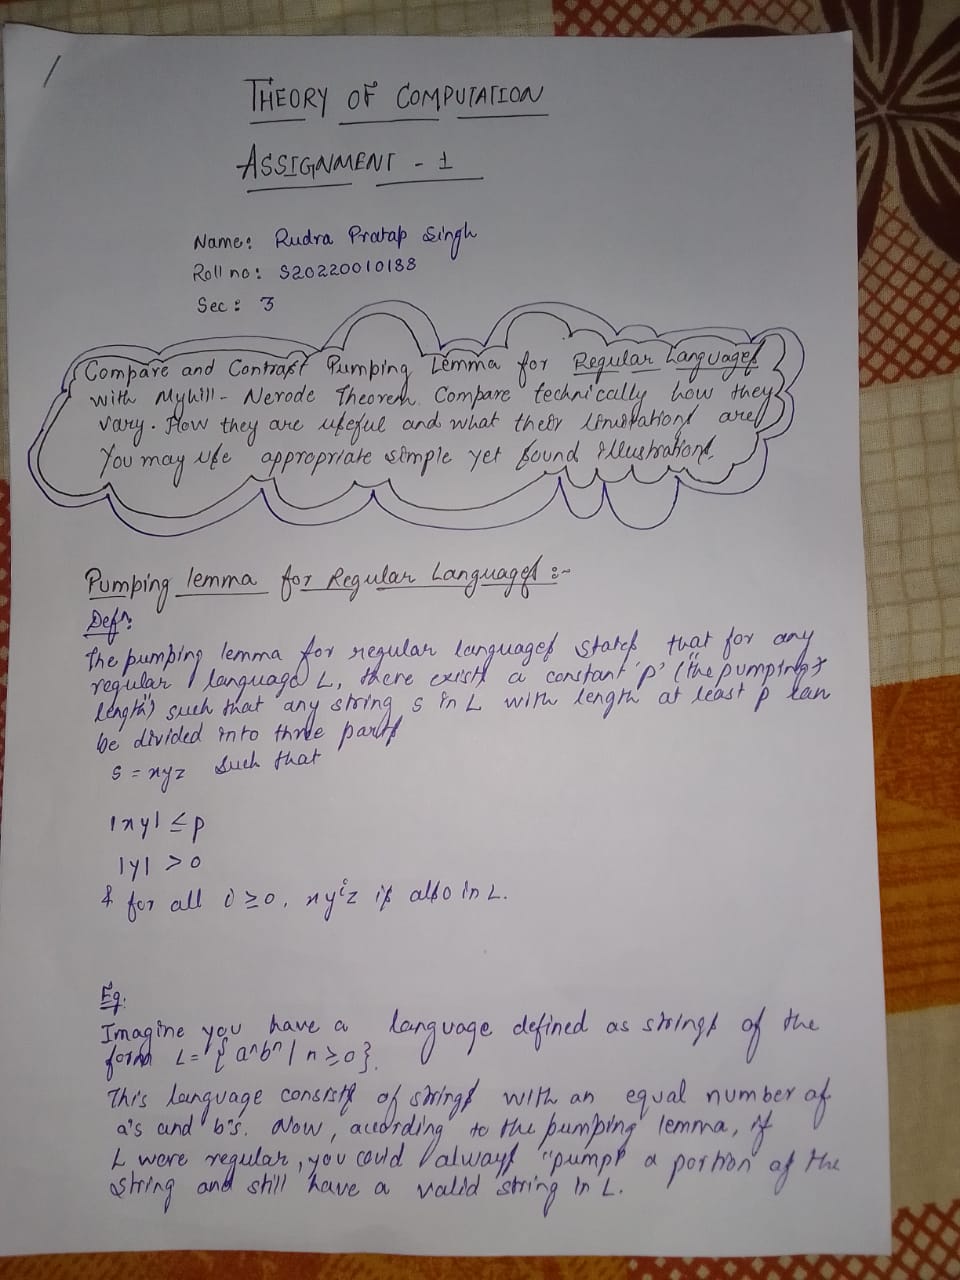 1
THEORY OF COMPUTATION
ASSIGNMENT - 1
Name: Rudra Pratap Singh
Roll no: S20220010188
Sec: 3
Compare and Contrast Pumping Lemma for Regular Languages
with Myhill-Nerode Theorem. Compare technically how they
vary. How they are useful and what their limitations are
You may use appropriate simple yet sound illustrations.
Pumping lemma for Regular Languages :-
Defn:
The pumping lemma for regular languages states that for any
regular language L, there exists a constant 'p' ("the pumping
length") such that any string s in L with length at least p can
be divided into three parts
s = xyz such that
|xy| ≤ p
|y| > 0
& for all i ≥ 0, xyⁱz is also in L.
Eg.
Imagine you have a language defined as strings of the
form L = {aⁿbⁿ | n ≥ 0}.
This language consists of strings with an equal number of
a's and b's. Now, according to the pumping lemma, if
L were regular, you could always "pump" a portion of the
string and still have a valid string in L.